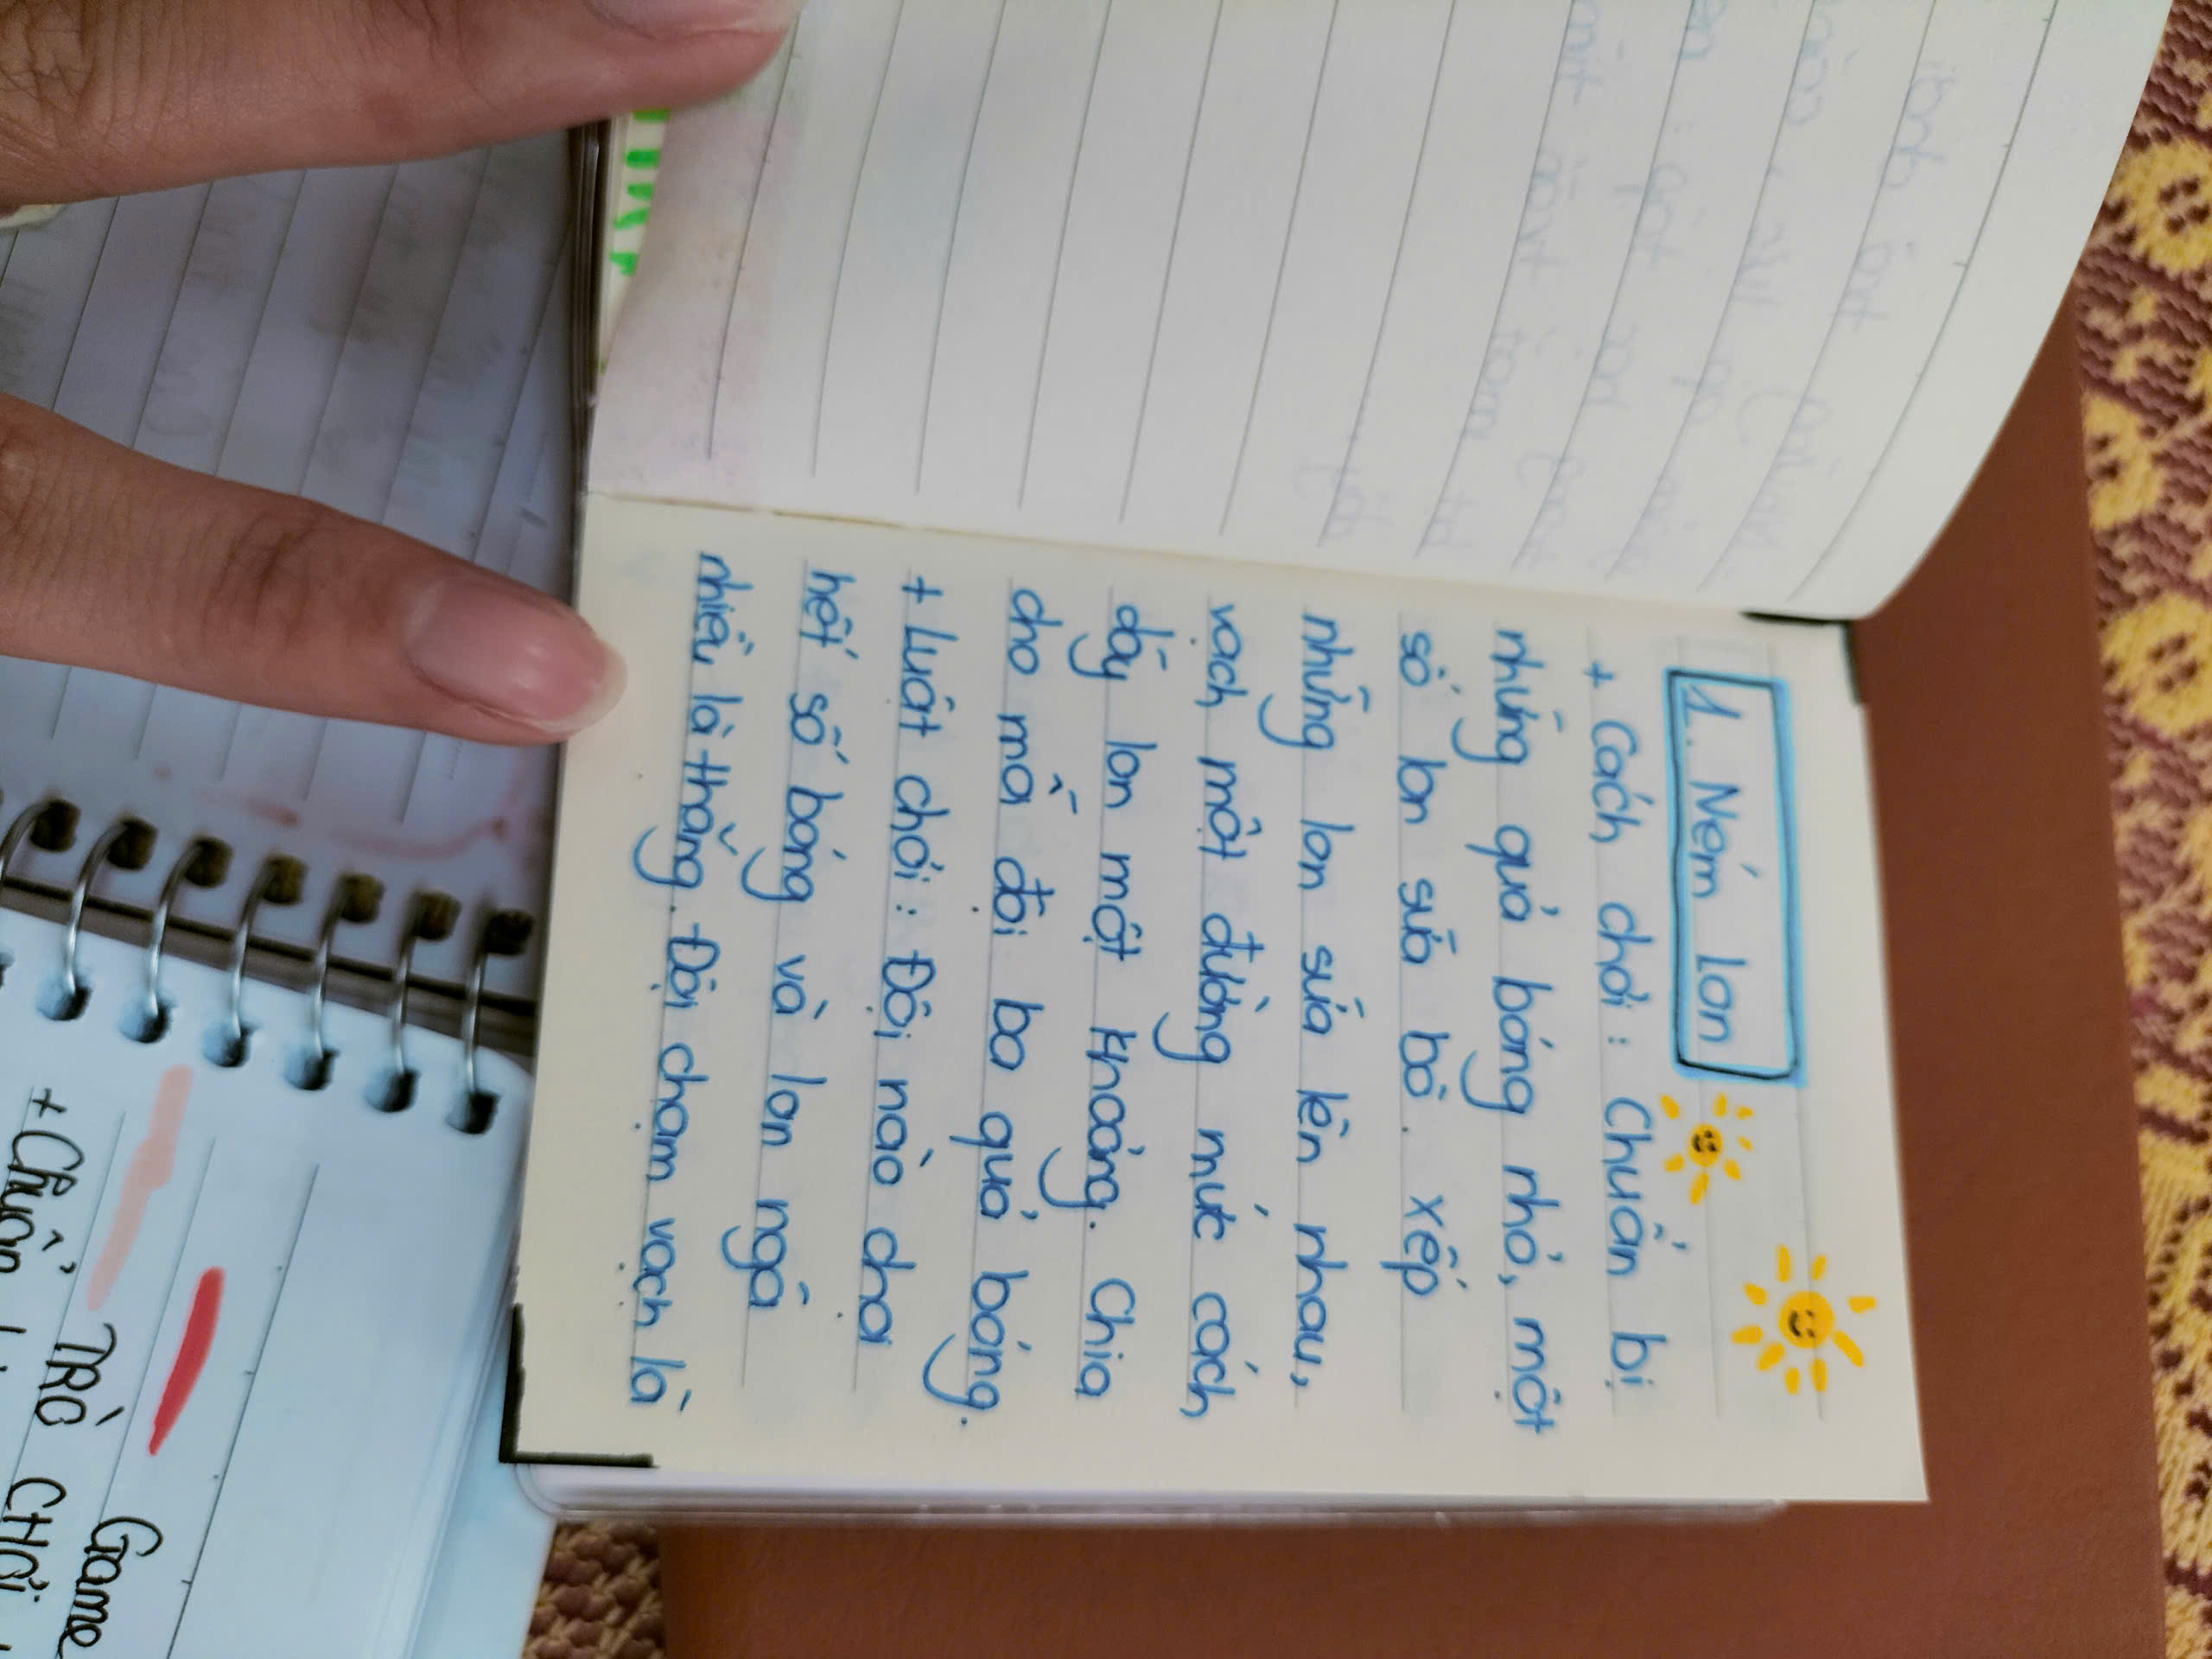 1. Ném lon
+ Cách chơi : Chuẩn bị
những quả bóng nhỏ, một
số lon sữa bò. Xếp
những lon sữa lên nhau,
vạch một đường mức cách
dãy lon một khoảng. Chia
cho mỗi đội ba quả bóng.
+ Luật chơi : Đội nào chọi
hết số bóng và lon ngã
nhiều là thắng. Đội chạm vạch là
Game
TRÒ CHƠI